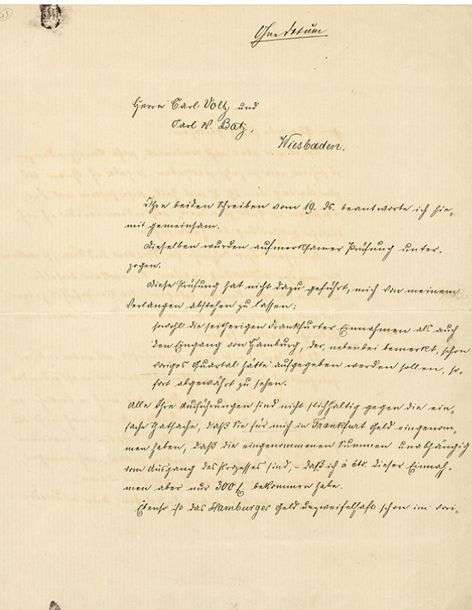 Ohne Datum
Herrn Carl Voltz und
Carl W. Batz.
Wiesbaden.
Ihre beiden Schreiben vom 19. ds. beantworte ich hie-
mit gemeinsam.
Dieselben wurden aufmerksamer Prüfung unter-
zogen.
Diese Prüfung hat nicht dazu geführt, mich von meinem
Verlangen abstehen zu lassen:
sowohl die seitherigen Frankfurter Einnahmen als auch
den Eingang von Hamburg, der, nebenbei bemerkt, schon
voriges Quartal hätte aufgegeben werden sollen, so-
fort abgewährt zu sehen.
Alle Ihre Ausführungen sind nicht stichhaltig gegen die ein-
fache Thatsache, daß Sie für mich in Frankfurt Geld eingenom-
men haben, daß die eingenommenen Summen unabhängig
vom Ausgang des Prozesses sind, – daß ich à Cto. dieser Einnah-
men aber nur 300 bekommen habe.
Ebenso ist das Hamburger Geld unzweifelhaft schon im vori-